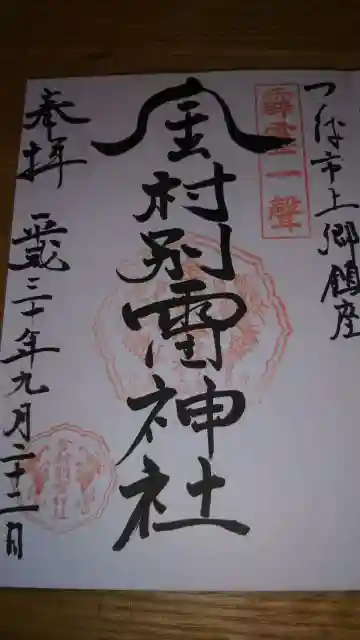 つくば市上郷鎮座
霹靂一聲
金村別雷神社
奉拝
平成三十年九月二十二日